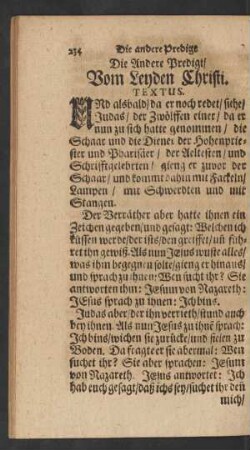 234
Die andere Predigt
Die Andere Predigt/
Vom Leyden Christi.
TEXTUS.
UNd alsbald/ da er noch redet/ siehe/
Judas/ der Zwölffen einer/ da er
nun zu sich hatte genommen/ die
Schaar und die Diener der Hohenprie-
ster und Pharisäer/ der Aeltesten/ und
Schrifftgelehrten/ gieng er zuvor der
Schaar/ und kommt dahin mit Fackeln/
Lampen/ mit Schwerdten und mit
Stangen.
Der Verräther aber hatte ihnen ein
Zeichen gegeben/ und gesagt: Welchen ich
küssen werde/ der ists/ den greiffet/ uñ füh-
ret ihn gewiß. Als nun JEsus wuste alles/
was ihm begegnen solte/ gieng er hinaus/
und sprach zu ihnen: Wen sucht ihr? Sie
antworten ihm: JEsum von Nazareth.
JEsus sprach zu ihnen: Ich bins.
Judas aber/ der ihn verrieth/ stund auch
bey ihnen. Als nun JEsus zu ihnẽ sprach:
Ich bins/ wichen sie zurücke/ und fielen zu
Boden. Da fragte er sie abermal: Wen
suchet ihr? Sie aber sprachen: JEsum
von Nazareth. JEsus antwortet: Ich
hab euch gesagt/ daß ichs sey/ suchet ihr den
mich/